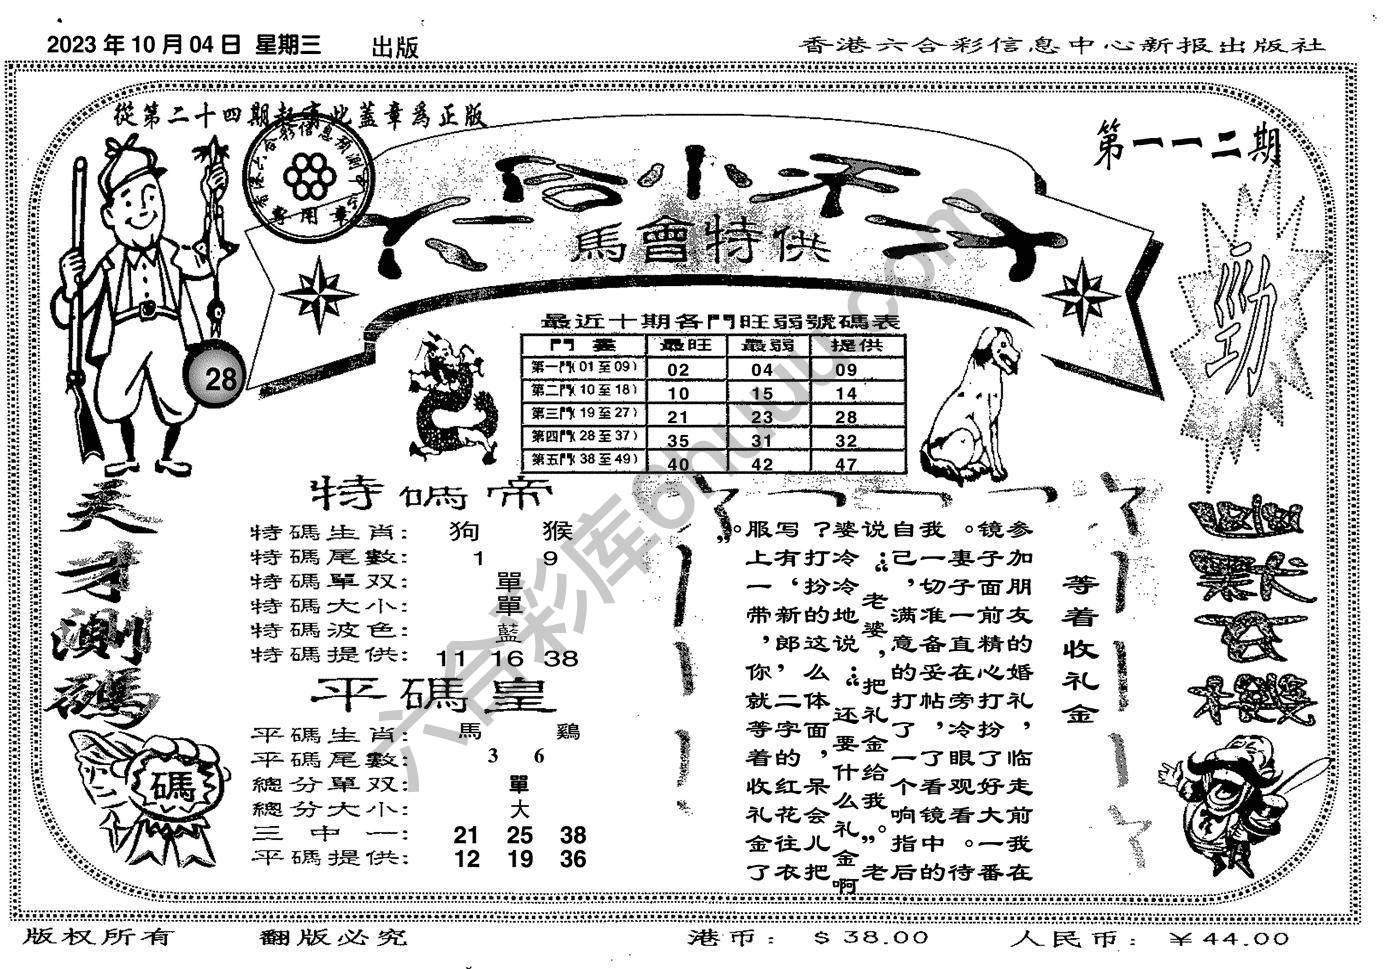 2023 年 10 月 04 日 星期三 出版
香港六合彩信息中心新报出版社
從第二十四期起蓋此蓋章爲正版
第一一二期
六合小子
馬會特供
勁
28
最近十期各門旺弱號碼表
門 最旺 最弱 提供
第一門( 01 至 09 ) 02 04 09
第二門( 10 至 18 ) 10 15 14
第三門( 19 至 27 ) 21 23 28
第四門( 28 至 37 ) 35 31 32
第五門( 38 至 49 ) 40 42 47
天才測碼
碼
特碼帝
特碼生肖: 狗 猴
特碼尾數: 1 9
特碼單双: 單
特碼大小: 單
特碼波色: 藍
特碼提供: 11 16 38
平碼皇
平碼生肖: 馬 鷄
平碼尾數: 3 6
總分單双: 單
總分大小: 大
三中一: 21 25 38
平碼提供: 12 19 36
等着收礼金
参加朋友的婚礼，临走前我在
镜子面前精心打扮了好大一番
。妻子一直在旁冷眼观看。待
我一切准备妥帖，了看镜中的
自己，满意的打了一个响指后
说:“老婆，把礼金给我。”老
婆冷冷地说:“还要什么礼金啊
？打扮的这么体面，呆会儿把
写有‘新郎’二字的红花往衣
服上一带，你就等着收礼金了
。”
版权所有 翻版必究 港币： $ 38.00 人民币：￥44.00
六合彩库6huu.com